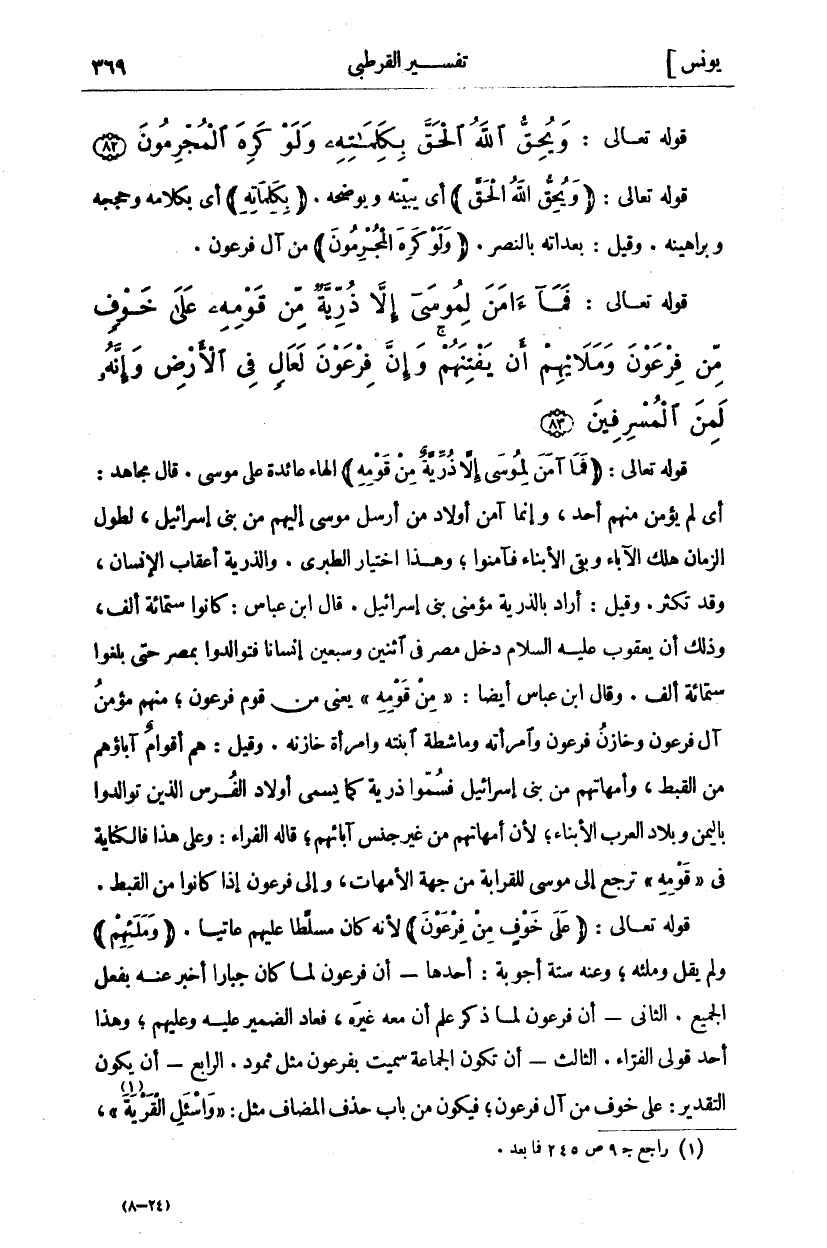 يونس ] تفسير القرطبى ٣٦٩
قوله تعالى : وَيُحِقُّ ٱللَّهُ ٱلْحَقَّ بِكَلِمَـٰتِهِۦ وَلَوْ كَرِهَ ٱلْمُجْرِمُونَ ﴿٨٢﴾
قوله تعالى : ﴿ وَيُحِقُّ اللهُ الْحَقَّ ﴾ أى يبيّنه ويوضحه . ﴿ بِكَلِمَاتِهِ ﴾ أى بكلامه وحججه
وبراهينه . وقيل : بعداته بالنصر . ﴿ وَلَوْ كَرِهَ الْمُجْرِمُونَ ﴾ من آل فرعون .
قوله تعالى : فَمَآ ءَامَنَ لِمُوسَىٓ إِلَّا ذُرِّيَّةٌ مِّن قَوْمِهِۦ عَلَىٰ خَوْفٍ
مِّن فِرْعَوْنَ وَمَلَإِيْهِمْ أَن يَفْتِنَهُمْ ۚ وَإِنَّ فِرْعَوْنَ لَعَالٍ فِى ٱلْأَرْضِ وَإِنَّهُۥ
لَمِنَ ٱلْمُسْرِفِينَ ﴿٨٣﴾
قوله تعالى : ﴿ فَمَا آمَنَ لِمُوسَى إِلَّا ذُرِّيَّةٌ مِنْ قَوْمِهِ ﴾ الهاء عائدة على موسى . قال مجاهد :
أى لم يؤمن منهم أحد ، وإنما آمن أولاد من أرسل موسى إليهم من بنى إسرائيل ، لطول
الزمان هلك الآباء وبقى الأبناء فآمنوا ؛ وهـذا اختيار الطبرى . والذرية أعقاب الإنسان ،
وقد تكثر . وقيل : أراد بالذرية مؤمنى بنى إسرائيل . قال ابن عباس : كانوا ستمائة ألف ،
وذلك أن يعقوب عليـه السلام دخل مصر فى آثنين وسبعين إنسانا فتوالدوا بمصر حتّى بلغوا
ستمائة ألف . وقال ابن عباس أيضا : « مِنْ قَوْمِهِ » يعنى من قوم فرعون ؛ منهم مؤمنُ
آل فرعون وخازنُ فرعون وآمرأته وماشطة آبنته وامرأة خازنه . وقيل : هم أقوامٌ آباؤهم
من القبط ، وأمهاتهم من بنى إسرائيل فسُمّوا ذرية كما يسمى أولاد الفُرس الذين توالدوا
باليمن وبلاد العرب الأبناء ؛ لأن أمهاتهم من غير جنس آبائهم ؛ قاله الفراء : وعلى هذا فالكناية
فى « قَوْمِهِ » ترجع إلى موسى للقرابة من جهة الأمهات ، وإلى فرعون إذا كانوا من القبط .
قوله تعالى : ﴿ عَلَى خَوْفٍ مِنْ فِرْعَوْنَ ﴾ لأنه كان مسلّطا عليهم عاتيا . ﴿ وَمَلَئِهِمْ ﴾
ولم يقل وملئه ؛ وعنه ستة أجوبة : أحدها — أن فرعون لمـا كان جبارا أخبر عنـه بفعل
الجميع . الثانى — أن فرعون لمـا ذكر علم أن معه غيرَه ، فعاد الضمير عليـه وعليهم ؛ وهذا
أحد قولى الفرّاء . الثالث — أن تكون الجماعة سميت بفرعون مثل ثمود . الرابع — أن يكون
التقدير : على خوف من آل فرعون ؛ فيكون من باب حذف المضاف مثل : « وَاسْئَلِ الْقَرْيَةَ (١) » ،
(١) راجع جـ ٩ ص ٢٤٥ فما بعد .
(٢٤—٨)